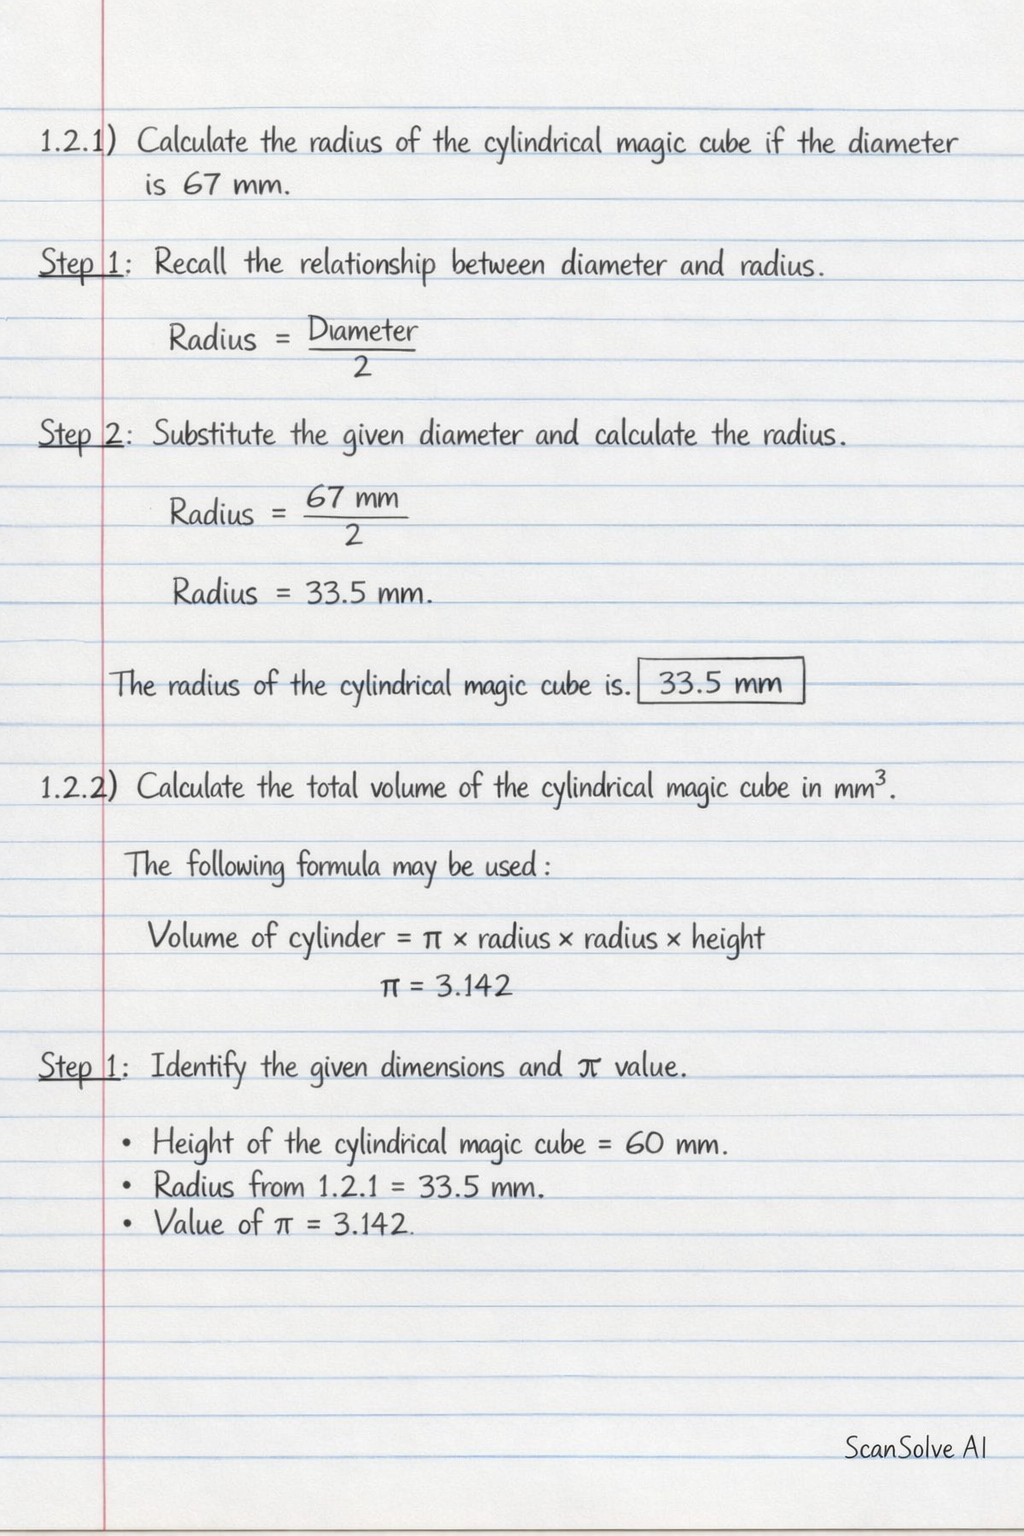 1.2.1) Calculate the radius of the cylindrical magic cube if the diameter
is 67 mm.
Step 1: Recall the relationship between diameter and radius.
Radius = Diameter
2
Step 2: Substitute the given diameter and calculate the radius.
Radius = 67 mm
2
Radius = 33.5 mm.
The radius of the cylindrical magic cube is. 33.5 mm
1.2.2) Calculate the total volume of the cylindrical magic cube in mm³.
The following formula may be used:
Volume of cylinder = π × radius × radius × height
π = 3.142
Step 1: Identify the given dimensions and π value.
• Height of the cylindrical magic cube = 60 mm.
• Radius from 1.2.1 = 33.5 mm.
• Value of π = 3.142.
ScanSolve AI